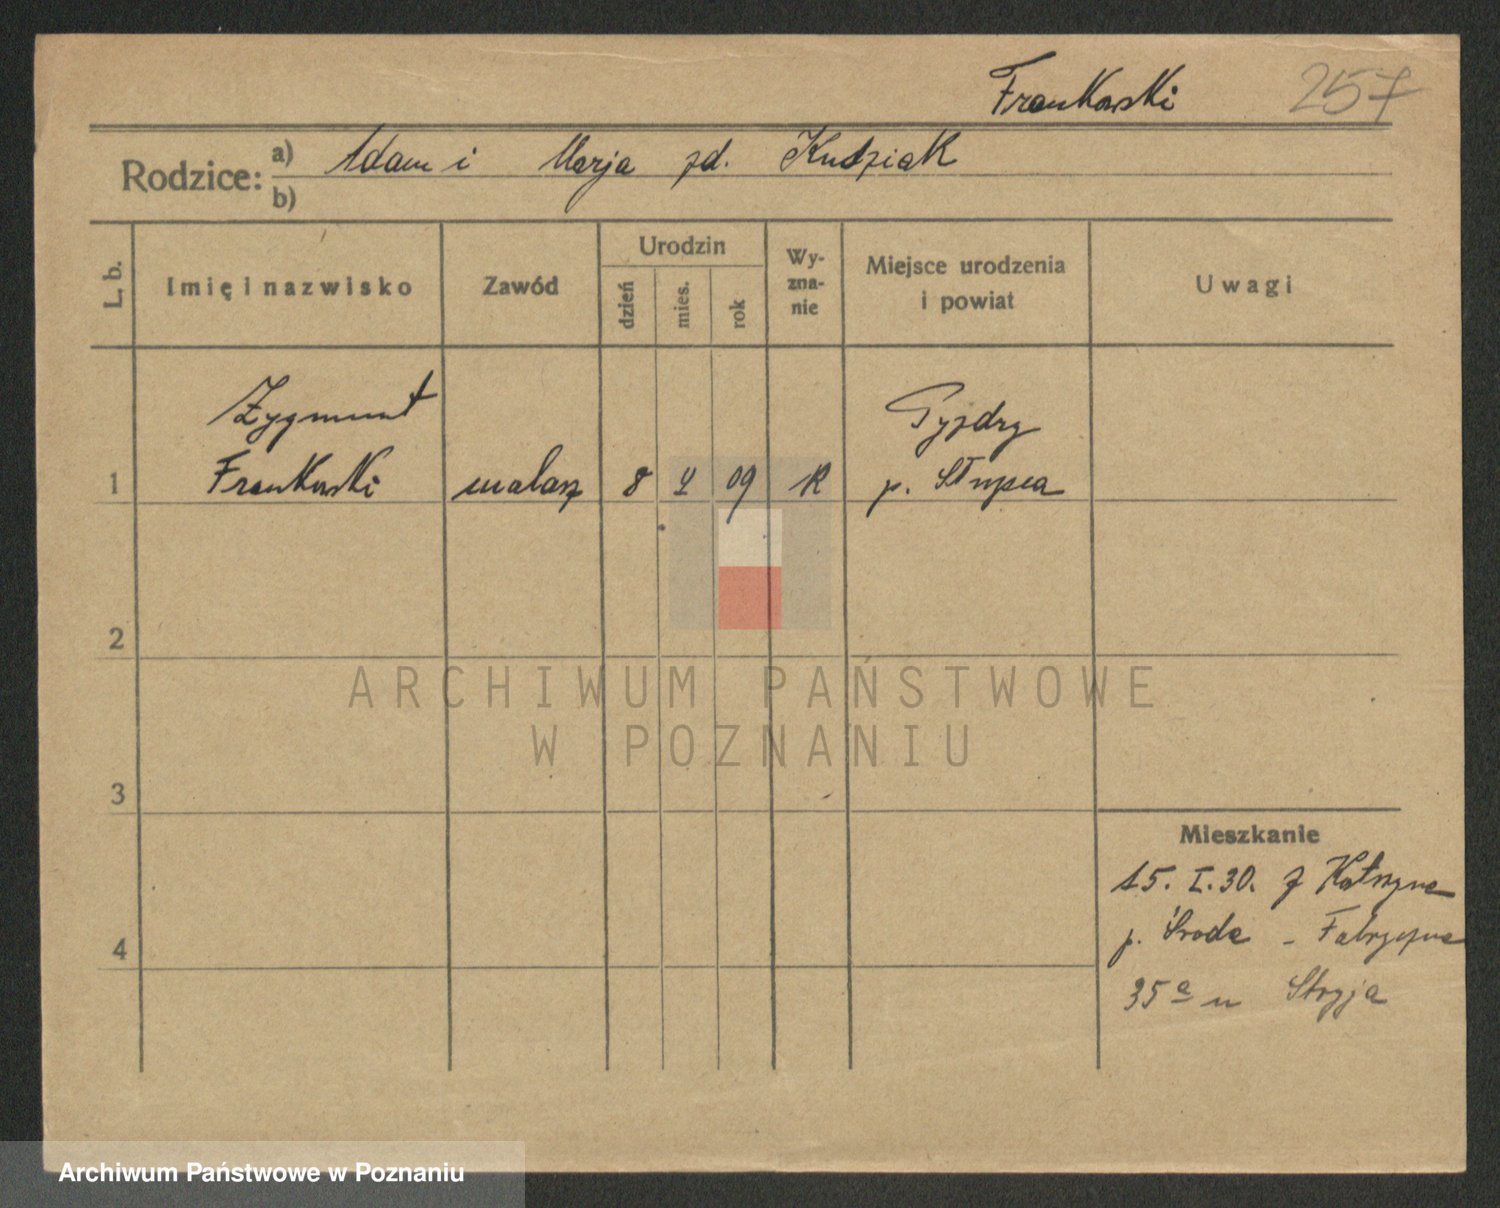 Frankowski 257
Rodzice: a) Adam i Marja zd. Kudziak
b)
L. b. Imię i nazwisko Zawód Urodzin dzień mies. rok Wy-zna-nie Miejsce urodzenia i powiat Uwagi
Zygmunt Pyzdry
1 Frankowski malarz 8 V 09 R p. Słupca
2
ARCHIWUM PAŃSTWOWE
W POZNANIU
3
Mieszkanie
15. I. 30. z
4 p. Środa - Fabryczna
35a u Stryja
Archiwum Państwowe w Poznaniu